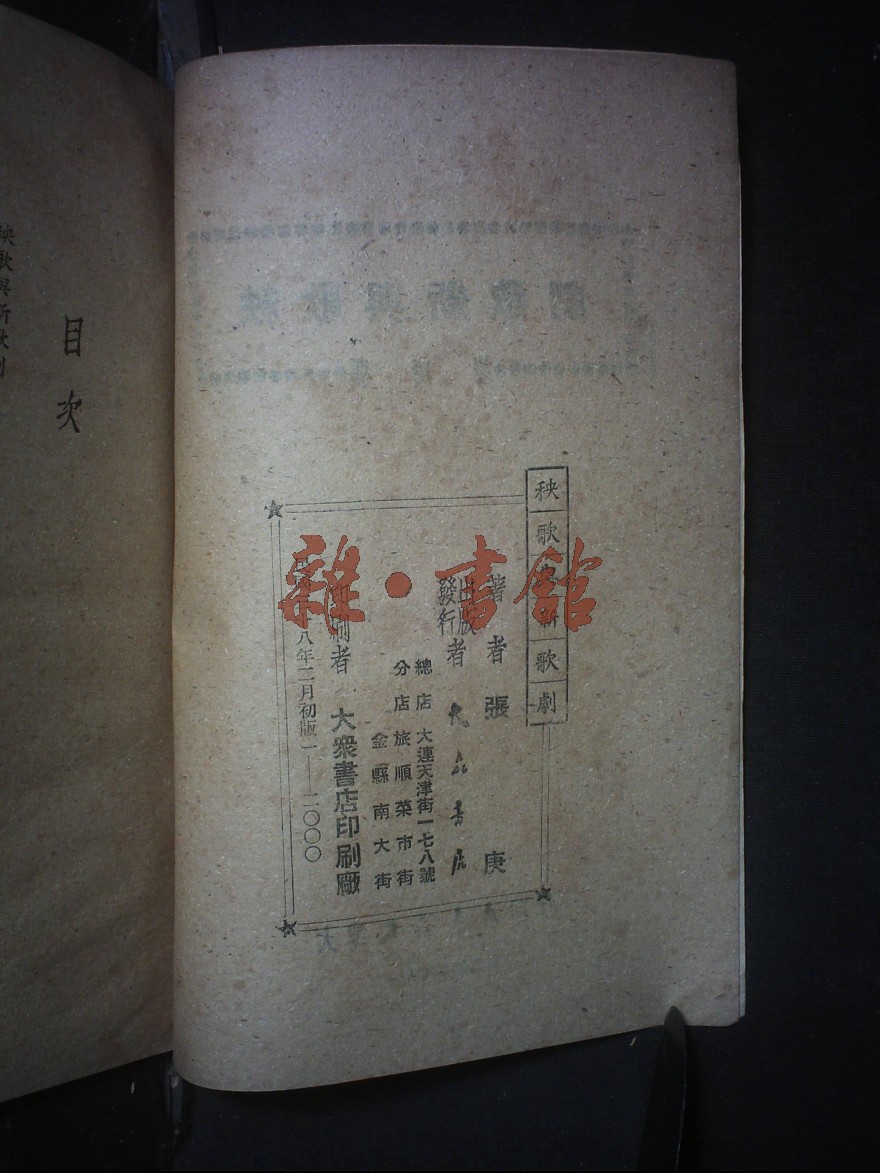 秧歌與新歌劇
著者 張庚
出版
發行者 書店
總店 大連天津街一七八號
分店 旅順菜市街
金縣南大街
印刷者 大衆書店印刷廠
八年二月初版 一——二〇〇〇
雜·書館
目次
秧歌與新歌劇